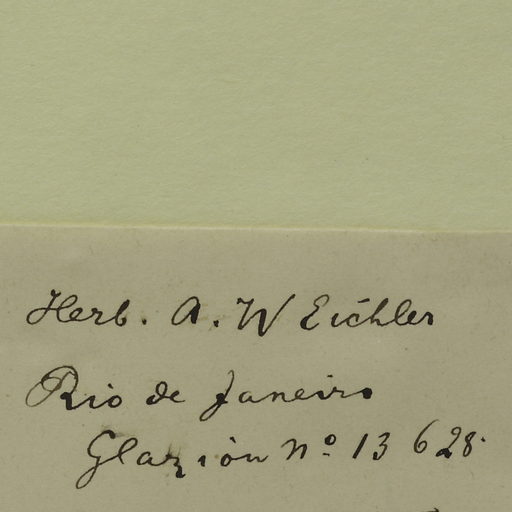 Herb. A. W Eichler
Rio de Janeiro
Glaziou Nº 13 628.